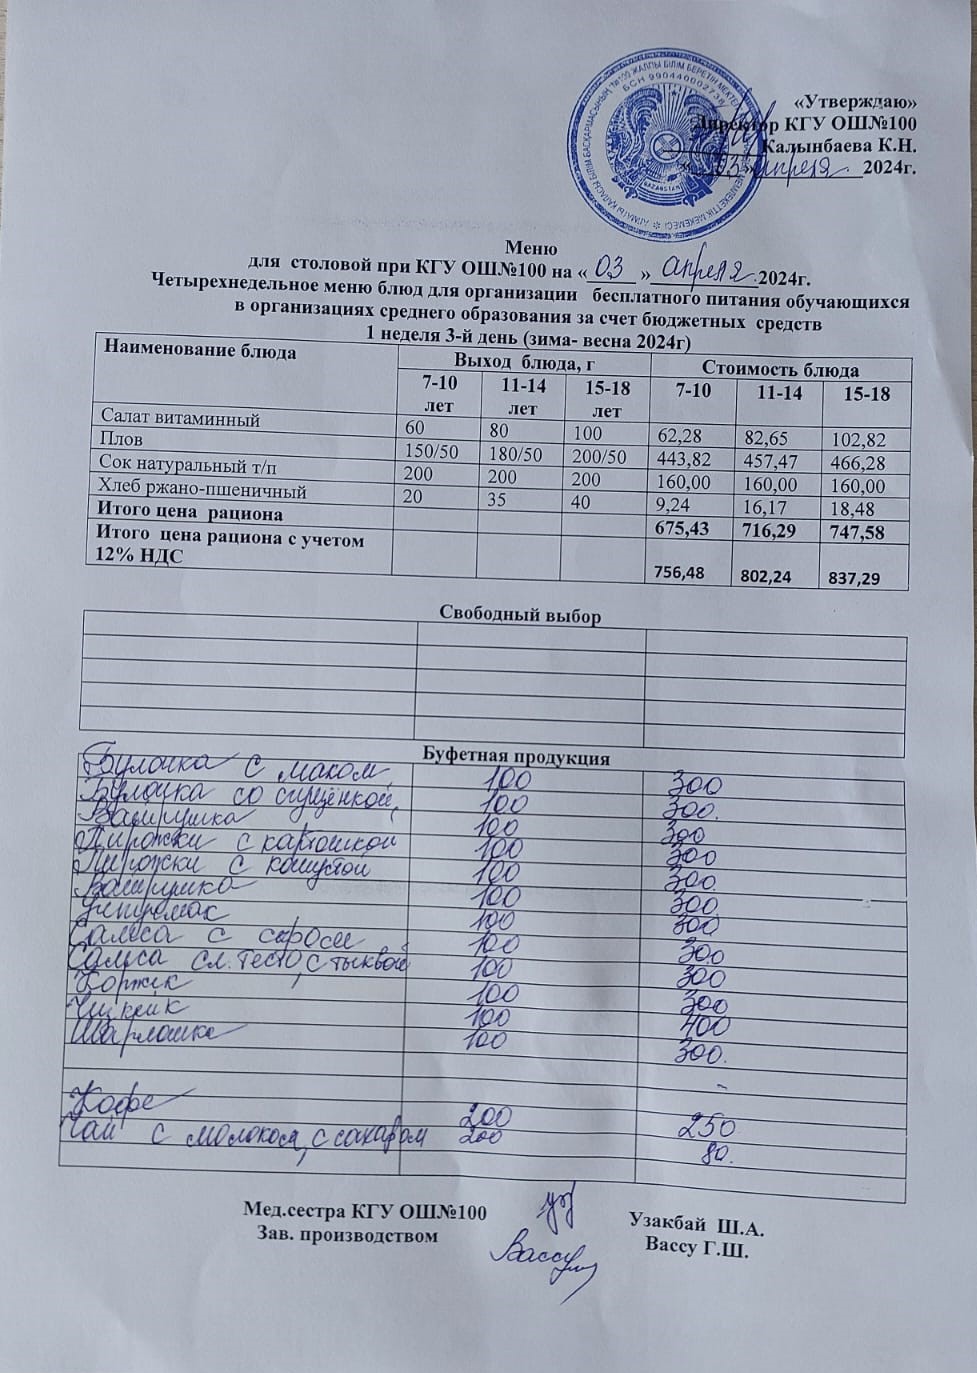 «Утверждаю»
Директор КГУ ОШ№100
Калынбаева К.Н.
«03» апреля 2024г.
БСН 990440002736
KAZAKHSTAN
Меню
для столовой при КГУ ОШ№100 на «03» апреля 2024г.
Четырехнедельное меню блюд для организации бесплатного питания обучающихся
в организациях среднего образования за счет бюджетных средств
1 неделя 3-й день (зима- весна 2024г)
Наименование блюда Выход блюда, г Стоимость блюда
7-10 лет 11-14 лет 15-18 лет 7-10 11-14 15-18
Салат витаминный 60 80 100 62,28 82,65 102,82
Плов 150/50 180/50 200/50 443,82 457,47 466,28
Сок натуральный т/п 200 200 200 160,00 160,00 160,00
Хлеб ржано-пшеничный 20 35 40 9,24 16,17 18,48
Итого цена рациона 675,43 716,29 747,58
Итого цена рациона с учетом
12% НДС 756,48 802,24 837,29
Свободный выбор
Буфетная продукция
Булочка с маком 100 300
Булочка со сгущёнкой, 100 300.
Ватрушка 100 300
Пирожки с картошкой 100 300
Пирожки с капустой 100 300.
Ватрушка 100 300
100 300
Самса с 100 300
Самса сл. тесто, с тыквой 100 300
Коржик 100 300
Чизкейк 100 400
Шарлотка 100 300.
Кофе 200 250
Чай с молоком, с сахаром 200 80.
Мед.сестра КГУ ОШ№100 Узакбай Ш.А.
Зав. производством Вассу Г.Ш.